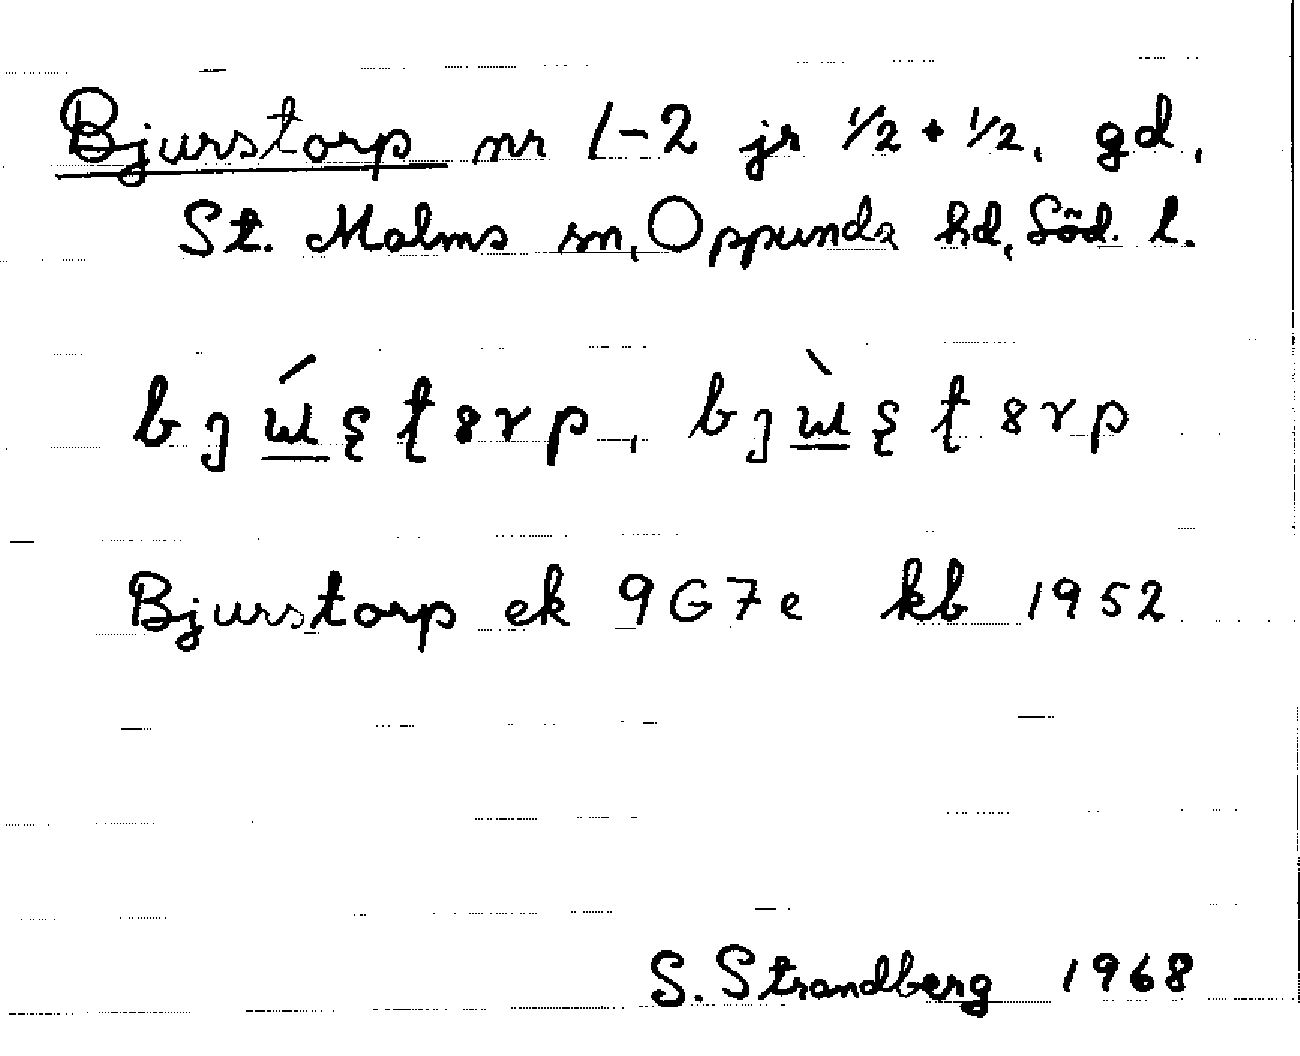 Bjurstorp nr 1-2 jr 1/2 + 1/2, gd,
St. Malms sn, Oppunda hd, Söd. l.
bȷɯ́ʂʈ8rp, bȷɯ̀ʂʈ8rp
Bjurstorp ek 9G7e kb 1952
S. Strandberg 1968